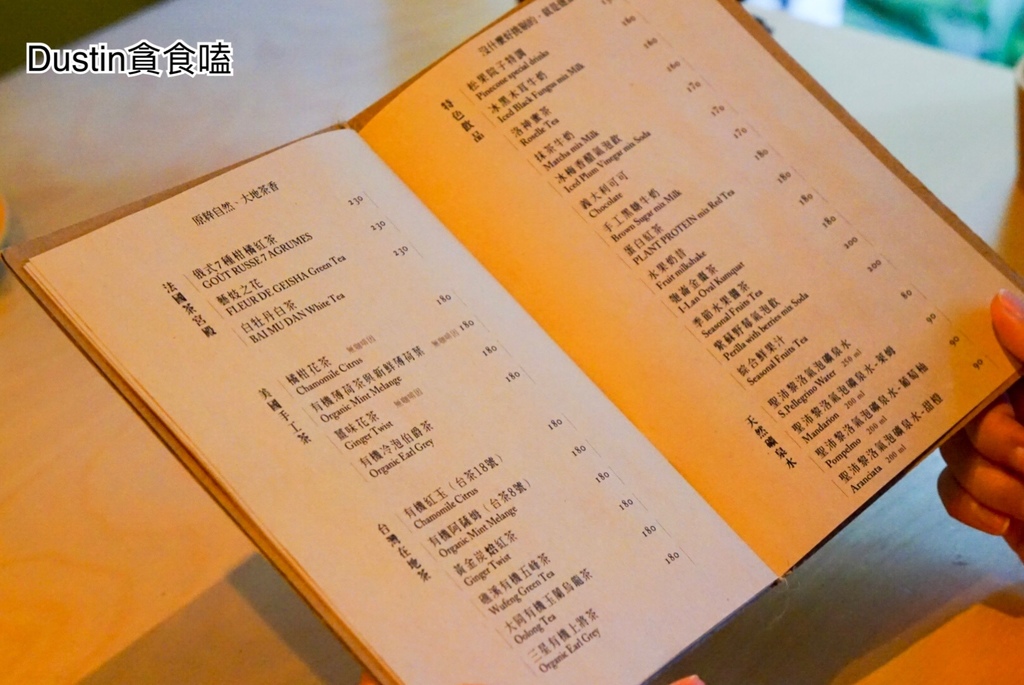 Dustin貪食嗑
原粹自然、大地茶香
法國茶宮殿
俄式7種柑橘紅茶 230
GOÛT RUSSE 7 AGRUMES
藝妓之花 230
FLEUR DE GEISHA Green Tea
白牡丹白茶 230
BAI MU DAN White Tea
美國手工茶
橘柑花茶 無咖啡因 180
Chamomile Citrus
有機薄荷茶與新鮮薄荷葉 無咖啡因 180
Organic Mint Melange
薑味花茶 無咖啡因 180
Ginger Twist
有機冷泡伯爵茶 180
Organic Earl Grey
台灣在地茶
有機紅玉（台茶18號） 180
Chamomile Citrus
有機阿薩姆（台茶8號） 180
Organic Mint Melange
黃金炭焙紅茶 180
Ginger Twist
礁溪有機五峰茶 180
Wufeng Green Tea
大同有機玉蘭烏龍茶 180
Oolong Tea
三星有機上將茶
Organic Earl Grey
特色飲品
松菓院子特調 180
Pinecone special drinks
冰黑木耳牛奶 180
Iced Black Fungus mix Milk
洛神蜜茶 170
Roselle Tea
抹茶牛奶 170
Matcha mix Milk
冰梅香醋氣泡飲 170
Iced Plum Vinegar mix Soda
義大利可可 180
Chocolate
手工黑糖牛奶 180
Brown Sugar mix Milk
蛋白紅茶 180
PLANT PROTEIN mix Red Tea
水果奶昔 180
Fruit milkshake
宜蘭金棗茶
I-Lan Oval Kumquat
季節水果醬茶 200
Seasonal Fruits Tea
紫蘇野莓氣泡飲 200
Perilla with berries mix Soda
綜合鮮果汁
Seasonal Fruits Tea
天然礦泉水
聖沛黎洛氣泡礦泉水 80
S.Pellegrino Water 250 ml
聖沛黎洛氣泡礦泉水-萊姆 90
Mandarion 200 ml
聖沛黎洛氣泡礦泉水-葡萄柚 90
Pompelmo 200 ml
聖沛黎洛氣泡礦泉水-甜橙 90
Aranciata 200 ml